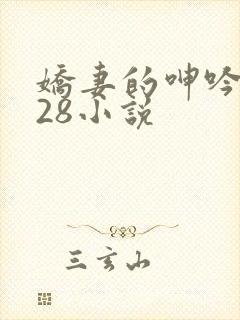 嬌妻的呻吟
28小說
三玄山